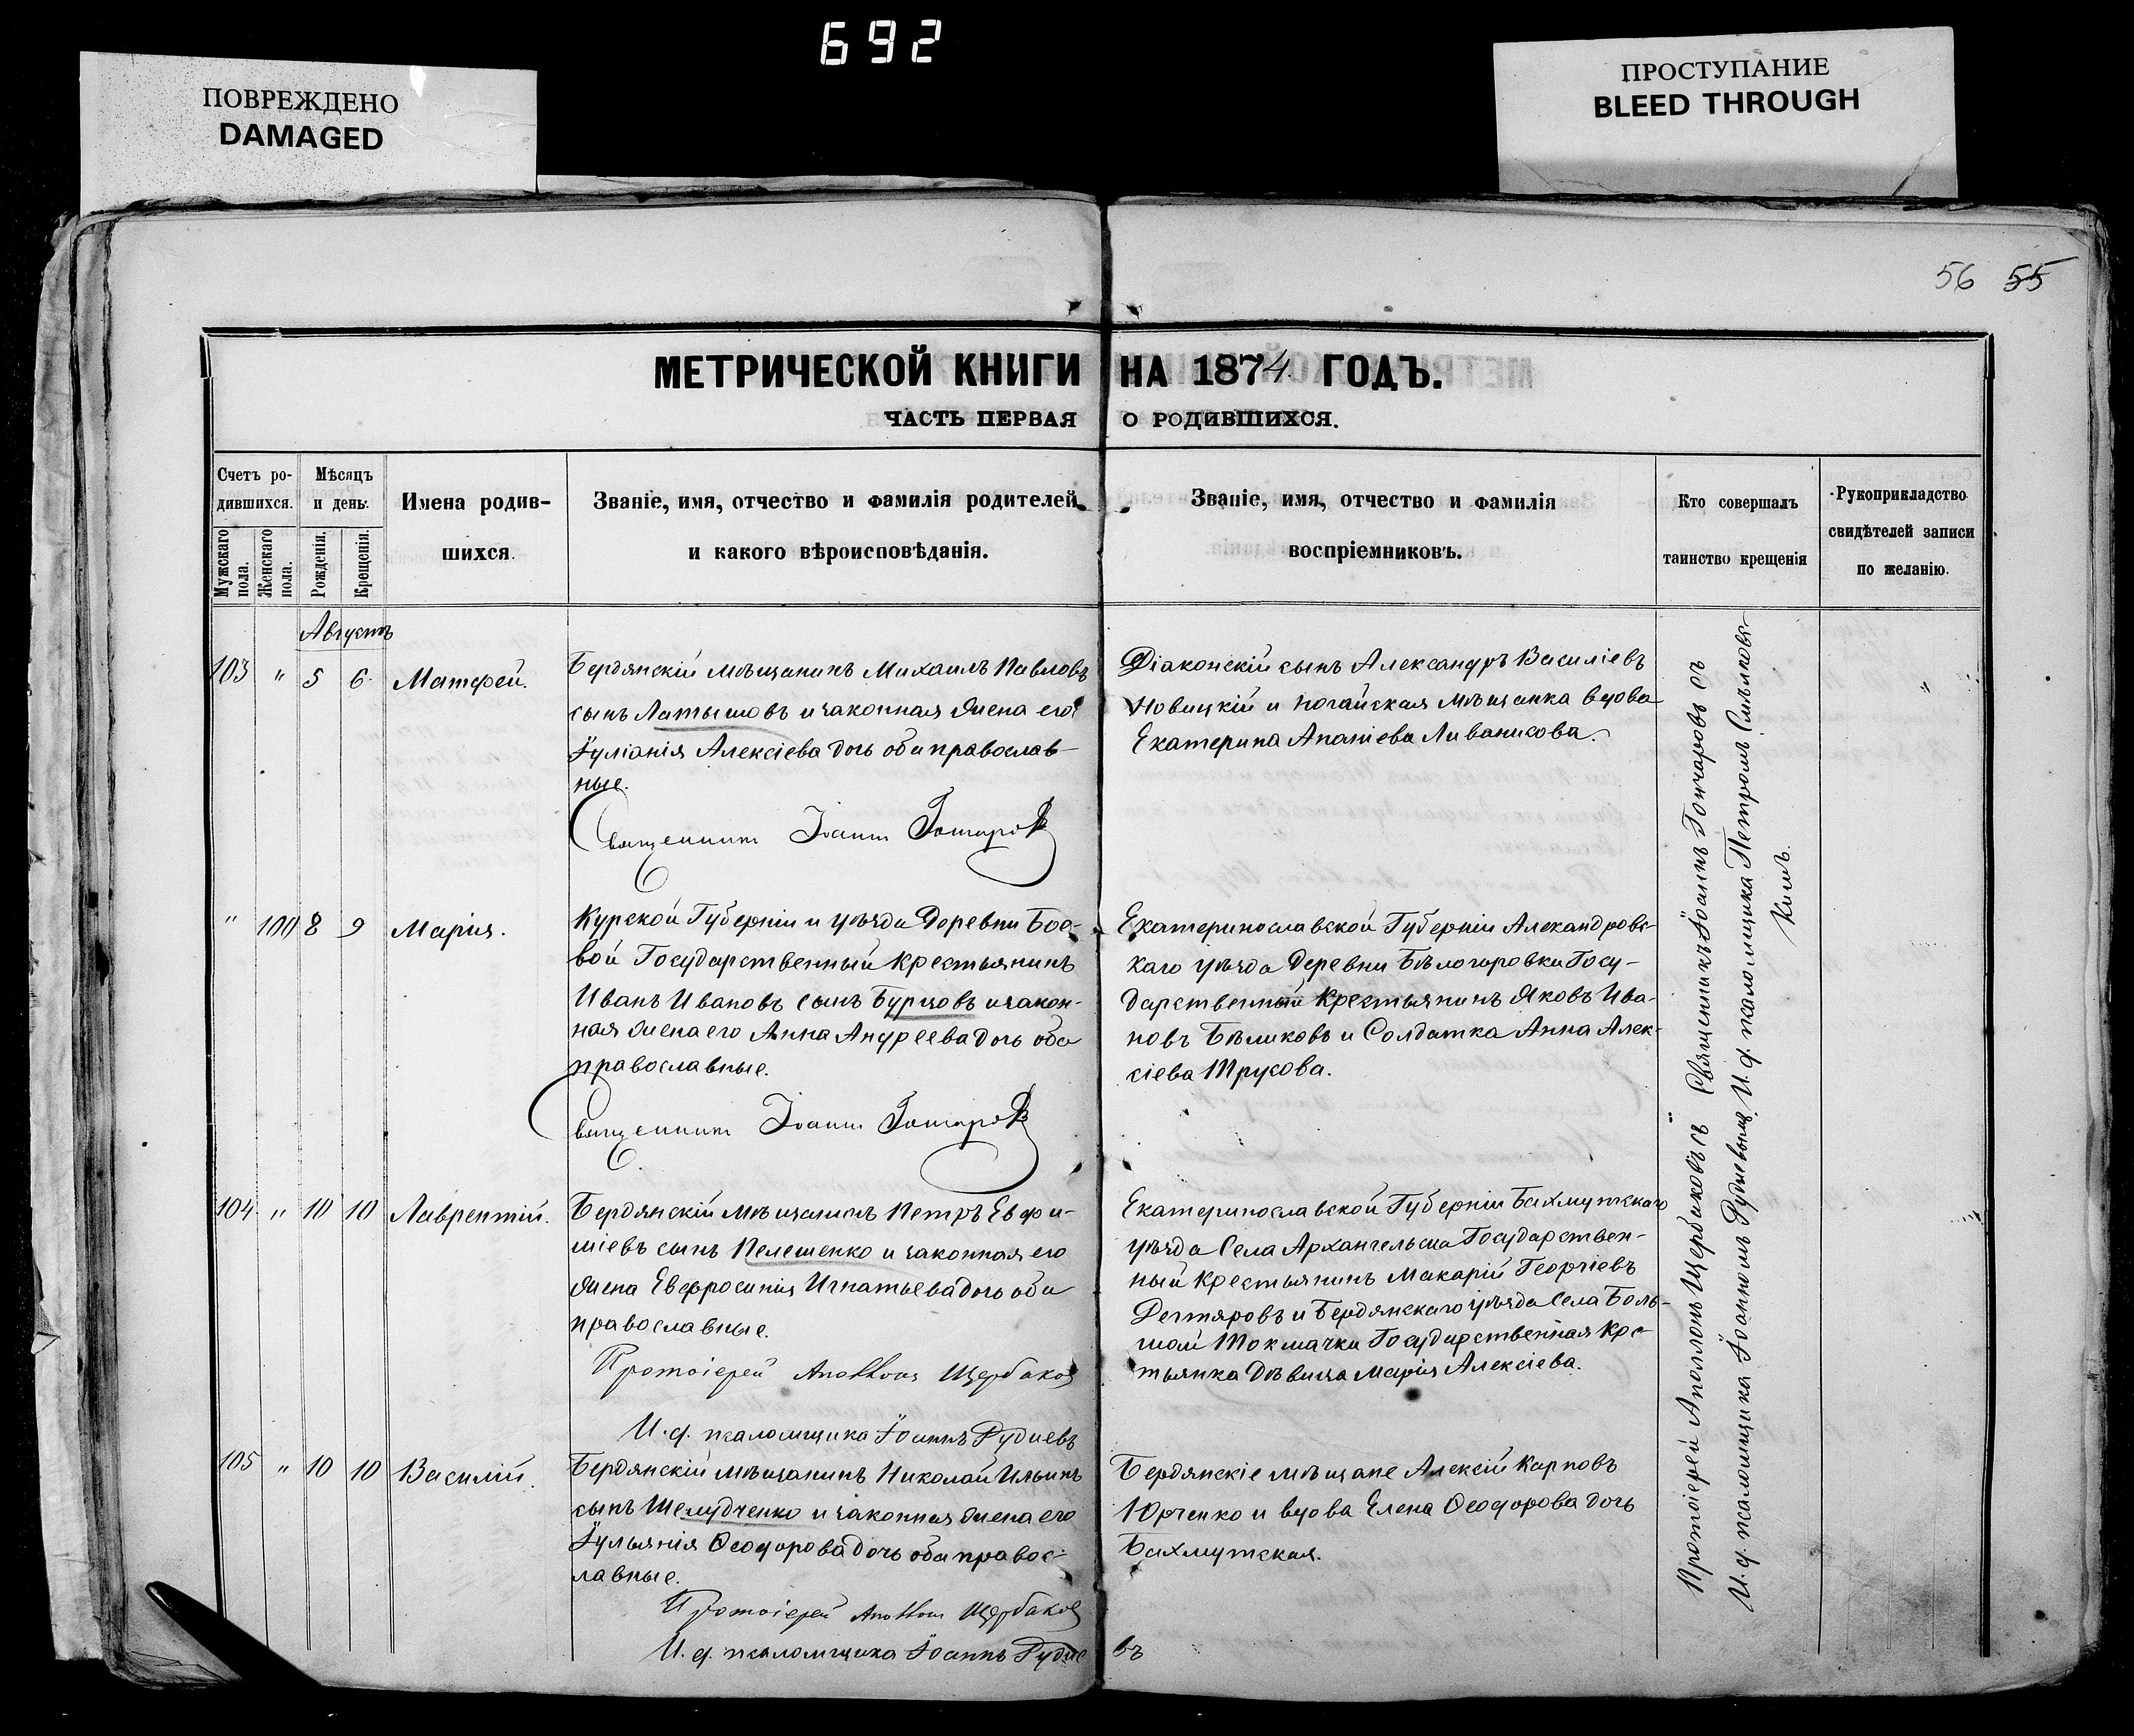 692
ПОВРЕЖДЕНО
DAMAGED
ПРОСТУПАНИЕ
BLEED THROUGH
56 55
МЕТРИЧЕСКОЙ КНИГИ НА 1874 ГОДЪ.
ЧАСТЬ ПЕРВАЯ О РОДИВШИХСЯ.
Счетъ ро-
дившихся.
Мужскаго пола.
Женскаго пола.
Мѣсяцъ
и день.
Рожденія.
Крещенія.
Имена родив-
шихся.
Званіе, имя, отчество и фамилія родителей
и какого вѣроисповѣданія.
Званіе, имя, отчество и фамилія
воспріемниковъ.
Кто совершалъ
таинство крещенія
Рукоприкладство
свидѣтелей записи
по желанію.
Августъ
103 " 5 6 Матфей.
Бердянскій мѣщанинъ Михаилъ Павловъ
сынъ Латышовъ и законная жена его
Іуліанія Алексіева дочь оба православ-
ные.
Священникъ Іоаннъ Гончаровъ
Діаконскій сынъ Александръ Василіевъ
Новицкій и ногайская мѣщанка вдова
Екатерина Ананіева
"
" 100 8 9 Марія.
Курской Губерніи и уѣзда Деревни
Государственный крестьянинъ
Иванъ Ивановъ сынъ Бурцовъ и закон-
ная жена его Анна Андреева дочь оба
православные.
Священникъ Іоаннъ Гончаровъ
Екатеринославской Губерніи Алекандровс-
каго уѣзда Деревни Бѣлогоровки Госу-
дарственный крестьянинъ Яковъ Ива-
новъ Бѣликовъ и Солдатка Анна Алек-
сіева Трусова.
104 " 10 10 Лаврентій.
Бердянскій мѣщанинъ Петръ Евфи-
міевъ сынъ Пелешенко и законная его
жена Евфросинія Игнатьева дочь оба
православные.
Протоіерей Аполлонъ Щербаковъ
И. д. псаломщика Іоаннъ Рудневъ
Екатеринославской Губерніи Бахмутскаго
уѣзда Села Архангельска Государствен-
ный крестьянинъ Макарій Георгіевъ
Дегтяровъ и Бердянскаго уѣзда Села Боль-
шой Токмачки Государственная кре-
стьянка дѣвица Марія Алексіева.
105 " 10 10 Василій.
Бердянскій мѣщанинъ Николай Ильинъ
сынъ Шелудченко и законная жена его
Іульянія Ѳеодорова дочь оба правос-
лавные.
Протоіерей Аполлонъ Щербаковъ
И. д. псаломщика Іоаннъ Рудневъ
Бердянскіе мѣщане Алексій Карповъ
Юрченко и вдова Елена Ѳеодорова дочь
Бахмутская.
Протоіерей Аполлонъ Щербаковъ съ
И. д. псаломщика Іоанномъ Рудневымъ
Священникъ Іоаннъ Гончаровъ съ
И. д. псаломщика Петромъ